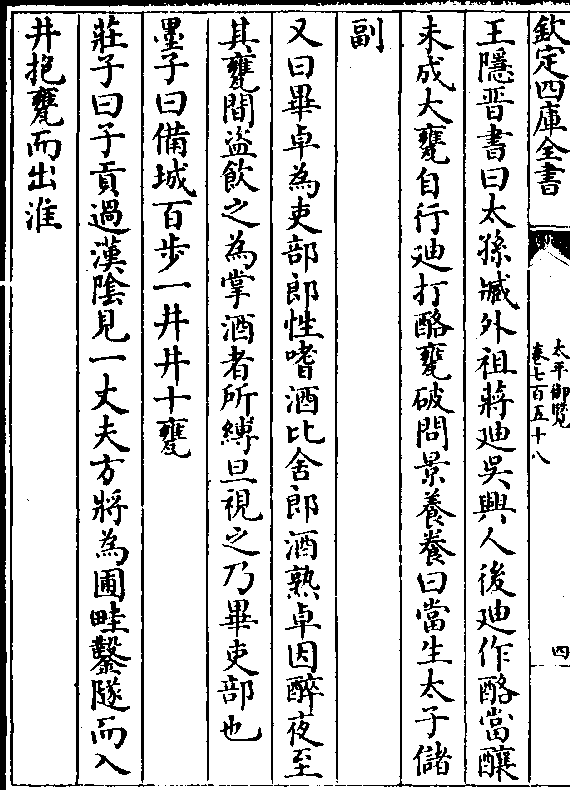 欽定四庫全書
太平御覽
卷七百五十八
四
王隱晉書曰太孫臧外祖蔣廸吳興人後廸作酪當釀
未成大甕自行廸打酪甕破問景養養曰當生太子儲
副
又曰畢卓為吏部郎性嗜酒比舍郎酒熟卓因醉夜至
其甕間盜飲之為掌酒者所縛旦視之乃畢吏部也
墨子曰備城百步一井井十甕
莊子曰子貢過漢陰見一丈夫方將為圃畦鑿隧而入
井抱甕而出淮